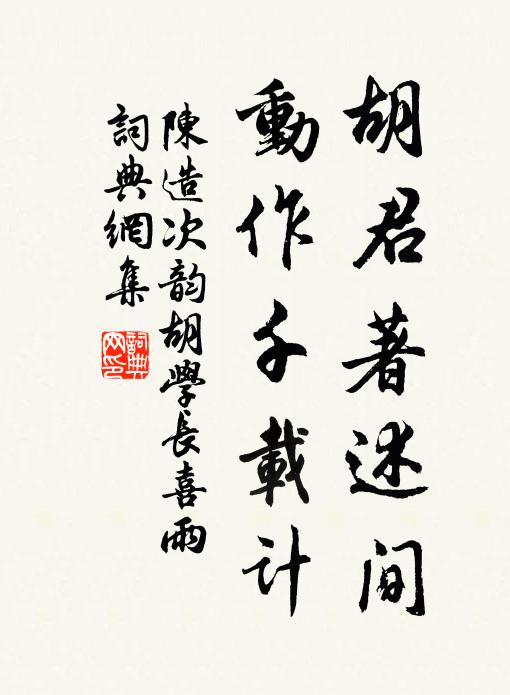 胡君著述间
動作千載计
陳造次韵胡學長喜雨
詞典網集
詞典网印